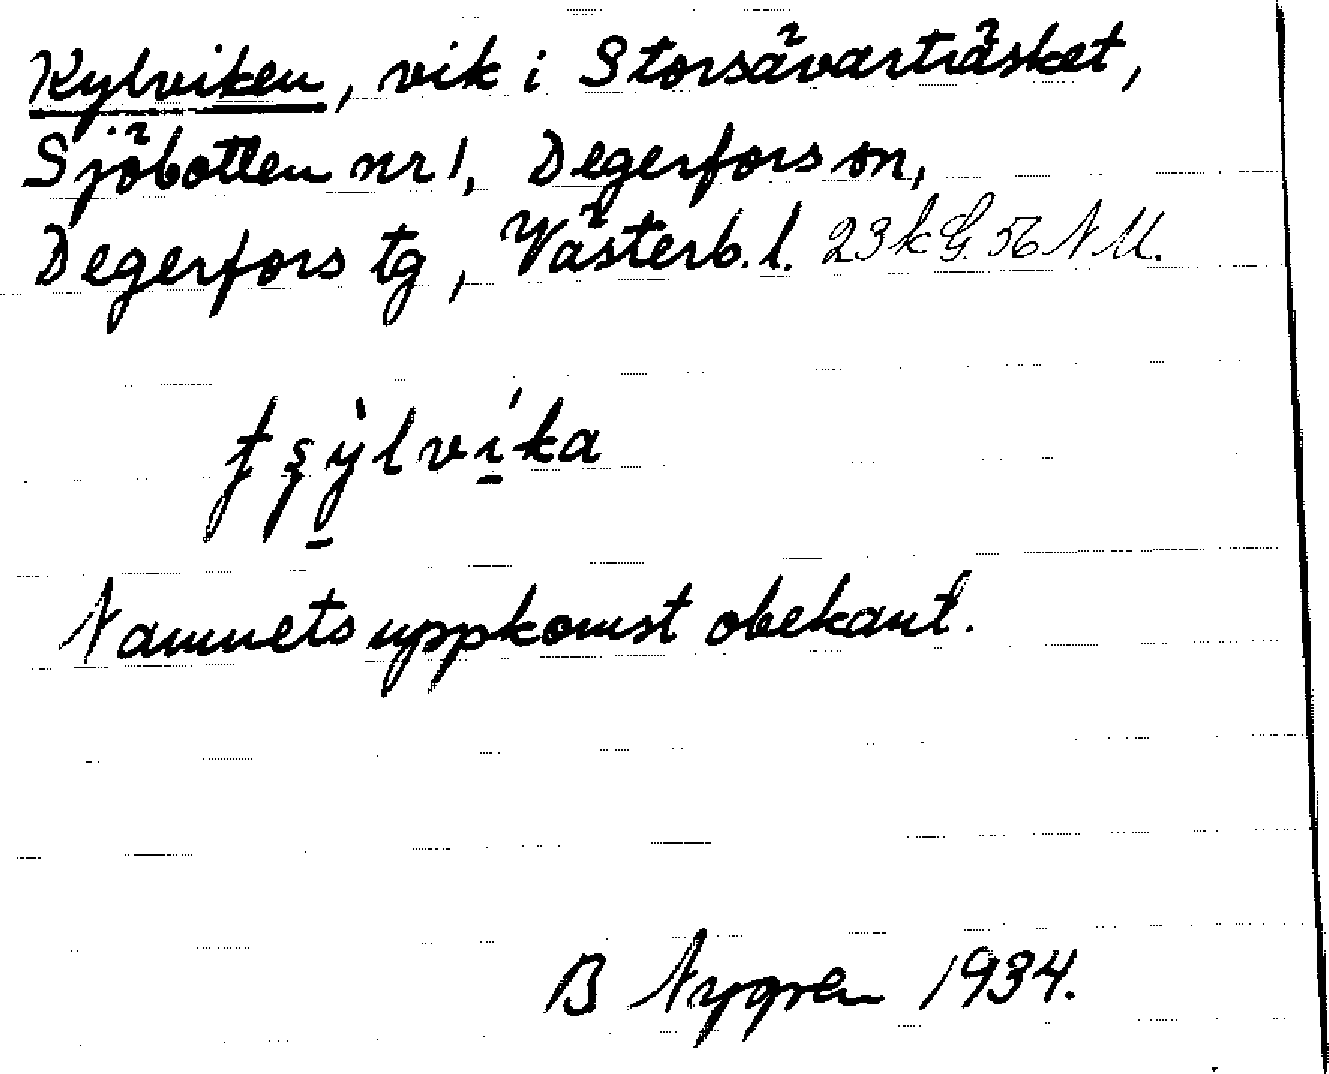 Kylviken, vik i Storsävarträsket,
Sjöbotten nr 1, Degerfors sn,
Degerfors tg, Västerb. l. 23k G. 56 N M.
Namnets uppkomst obekant.
B Nygren 1934.